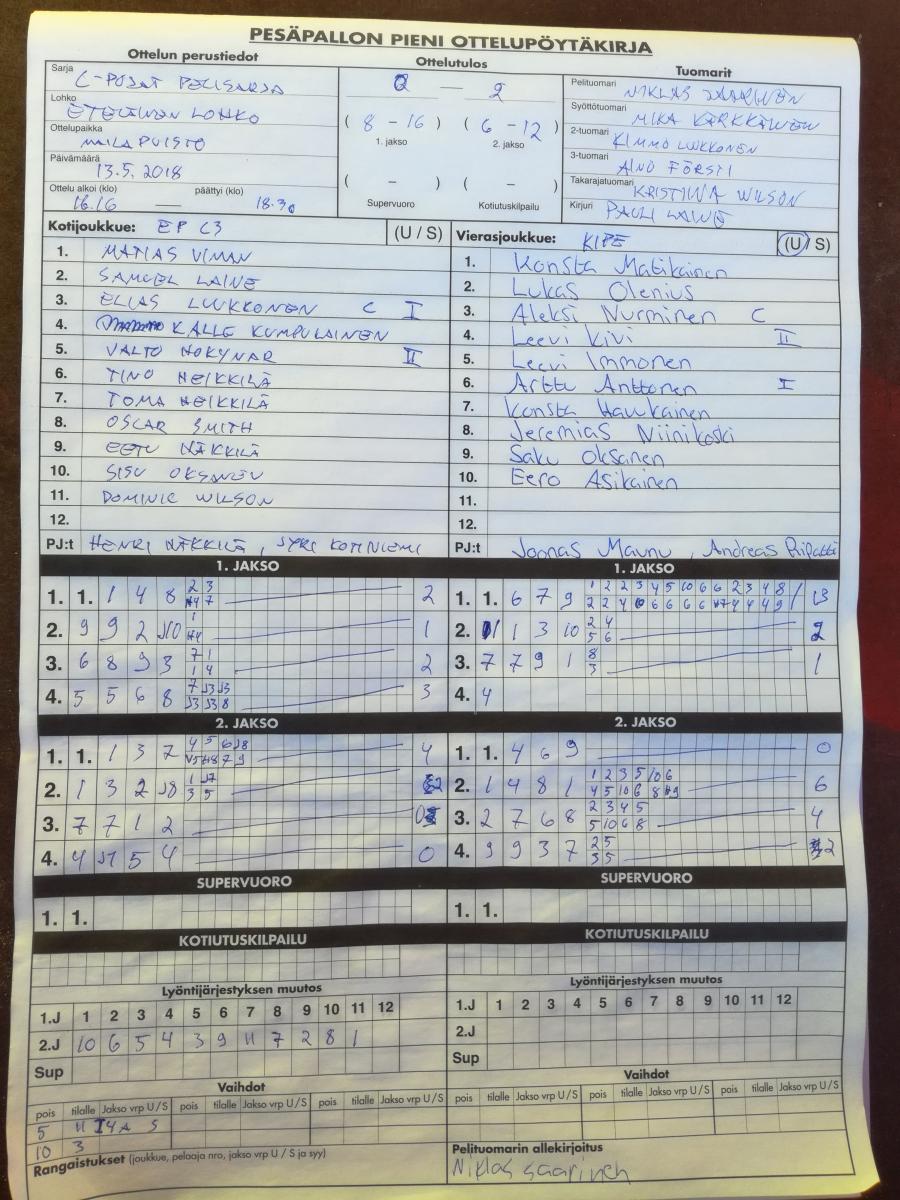 PESÄPALLON PIENI OTTELUPÖYTÄKIRJA
Ottelun perustiedot
Sarja C-POJAT PELISARJA
Lohko ETELÄINEN LOHKO
Ottelupaikka MAILAPUISTO
Päivämäärä 13.5.2018
Ottelu alkoi (klo) päättyi (klo)
16.16 — 18.30
Ottelutulos
0 — 2
( 8 - 16 ) ( 6 - 12 )
1. jakso 2. jakso
( - ) ( - )
Supervuoro Kotiutuskilpailu
Tuomarit
Pelituomari NIKLAS SAARINEN
Syöttötuomari MIKA KÄRKKÄINEN
2-tuomari KIMMO LUUKKONEN
3-tuomari AINO FÖRSTI
Takarajatuomari KRISTIINA WILSON
Kirjuri PAULI LAINE
Kotijoukkue: EP C3 (U / S)
1. MATIAS VIMAN
2. SAMUEL LAINE
3. ELIAS LUUKKONEN C I
4. KALLE KUMPULAINEN
5. VALTO HOKYNAR II
6. TINO HEIKKILÄ
7. TOMA HEIKKILÄ
8. OSCAR SMITH
9. EETU NÄKKILÄ
10. SISU OKSANEN
11. DOMINIC WILSON
12.
PJ:t HENRI NÄKKILÄ, JYRI KOTINIEMI
Vierasjoukkue: KIPE (U / S)
1. Konsta Matikainen
2. Lukas Olenius
3. Aleksi Nurminen C
4. Leevi Kivi II
5. Leevi Immonen
6. Arttu Anttonen I
7. Konsta Haukkainen
8. Jeremias Niinikoski
9. Saku Oksanen
10. Eero Asikainen
11.
12.
PJ:t Joonas Maunu, Andreas
1. JAKSO
1. 1. 1 4 8 2 3 7 2
2. 9 9 2 1 1
3. 6 8 9 3 7 1 1 4 2
4. 5 5 6 8 7 3
1. JAKSO
1. 1. 6 7 9 1 2 2 3 4 5 10 6 6 2 3 4 8 13
2 2 4 10 6 6 6 6 4 4 4 9
2. 1 3 10 2 4 5 6 2
3. 7 7 9 1 8 3 1
4. 4
2. JAKSO
1. 1. 1 3 7 4 5 6 7 9 4
2. 1 3 2 1 3 5 2
3. 7 7 1 2 0
4. 4 5 4 0
2. JAKSO
1. 1. 4 6 9 0
2. 1 4 8 1 1 2 3 5 10 6 6
4 5 10 6 8
3. 2 7 6 8 2 3 4 5 4
5 10 6 8
4. 9 9 3 7 2 5 2
3 5
SUPERVUORO
1. 1.
SUPERVUORO
1. 1.
KOTIUTUSKILPAILU
KOTIUTUSKILPAILU
Lyöntijärjestyksen muutos
1.J 1 2 3 4 5 6 7 8 9 10 11 12
2.J 10 6 5 4 3 9 11 7 2 8 1
Sup
Lyöntijärjestyksen muutos
1.J 1 2 3 4 5 6 7 8 9 10 11 12
2.J
Sup
Vaihdot
pois tilalle Jakso vrp U / S pois tilalle Jakso vrp U / S pois tilalle Jakso vrp U / S
5 11 I 4A S
10 3
Vaihdot
pois tilalle Jakso vrp U / S pois tilalle Jakso vrp U / S pois tilalle Jakso vrp U / S
Rangaistukset (joukkue, pelaaja nro, jakso vrp U / S ja syy)
Pelituomarin allekirjoitus
Niklas Saarinen